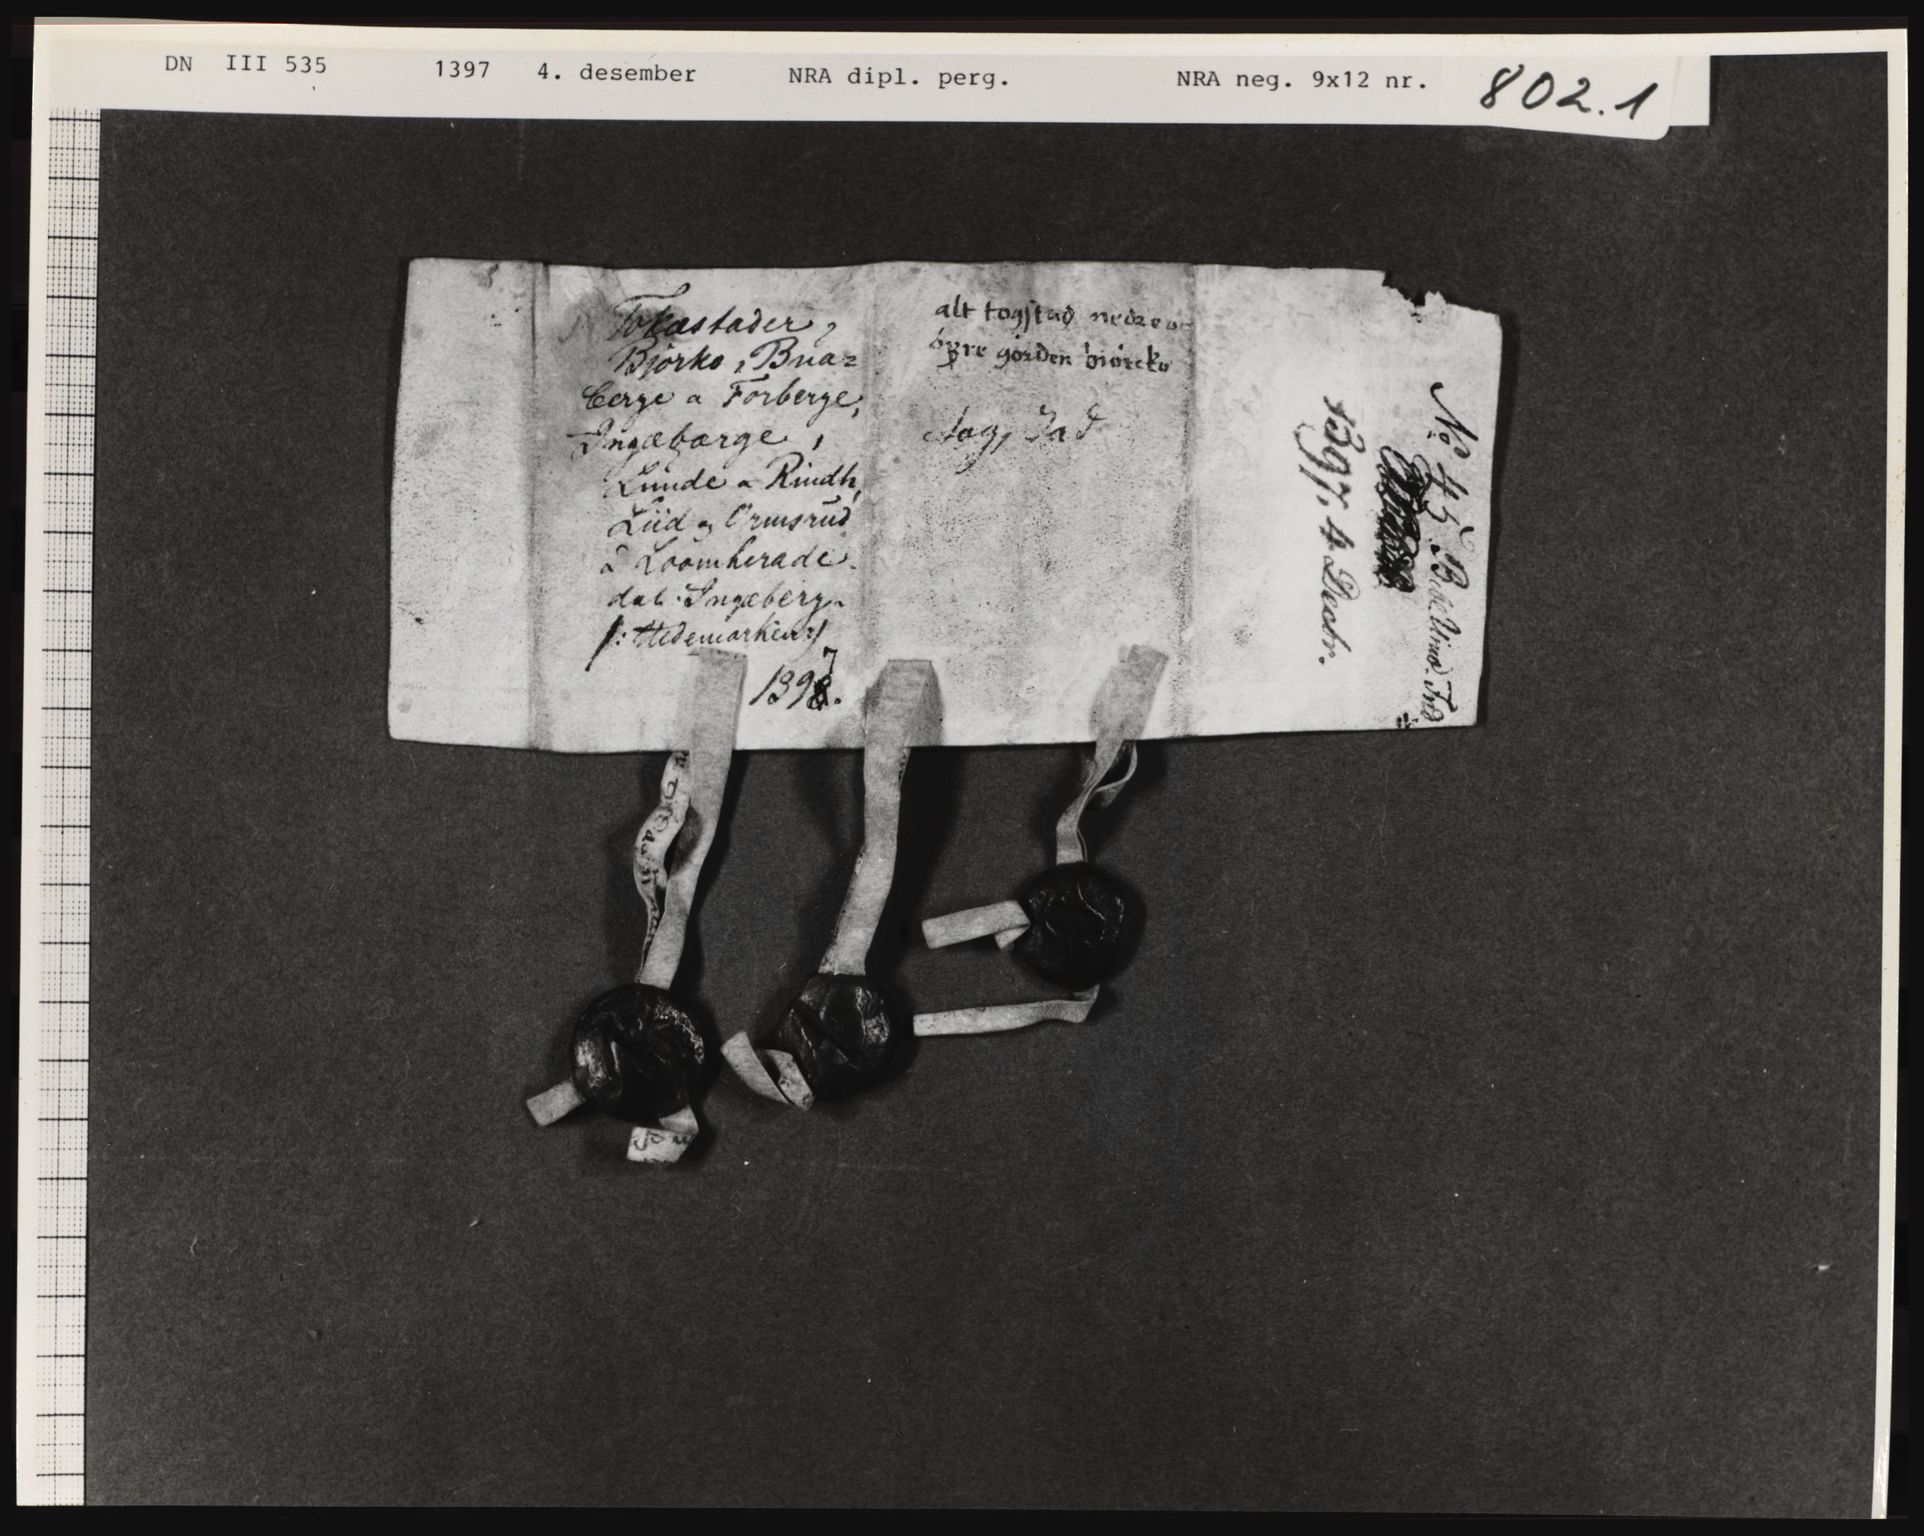 DN III 535 1397 4. desember NRA dipl. perg. NRA neg. 9x12 nr. 802.1
Tokastader,
Björko, Bua=
berge a Forberge,
Ingæbærge,
Lunde a Rindh,
Liid a Ormsrud
a Loomherade
Ingæberg
|: Hedemarken :|
1397.
alt togstad nedre o
öpre görden biörcko
Togstad
1397, 4 Decbr.
No 45